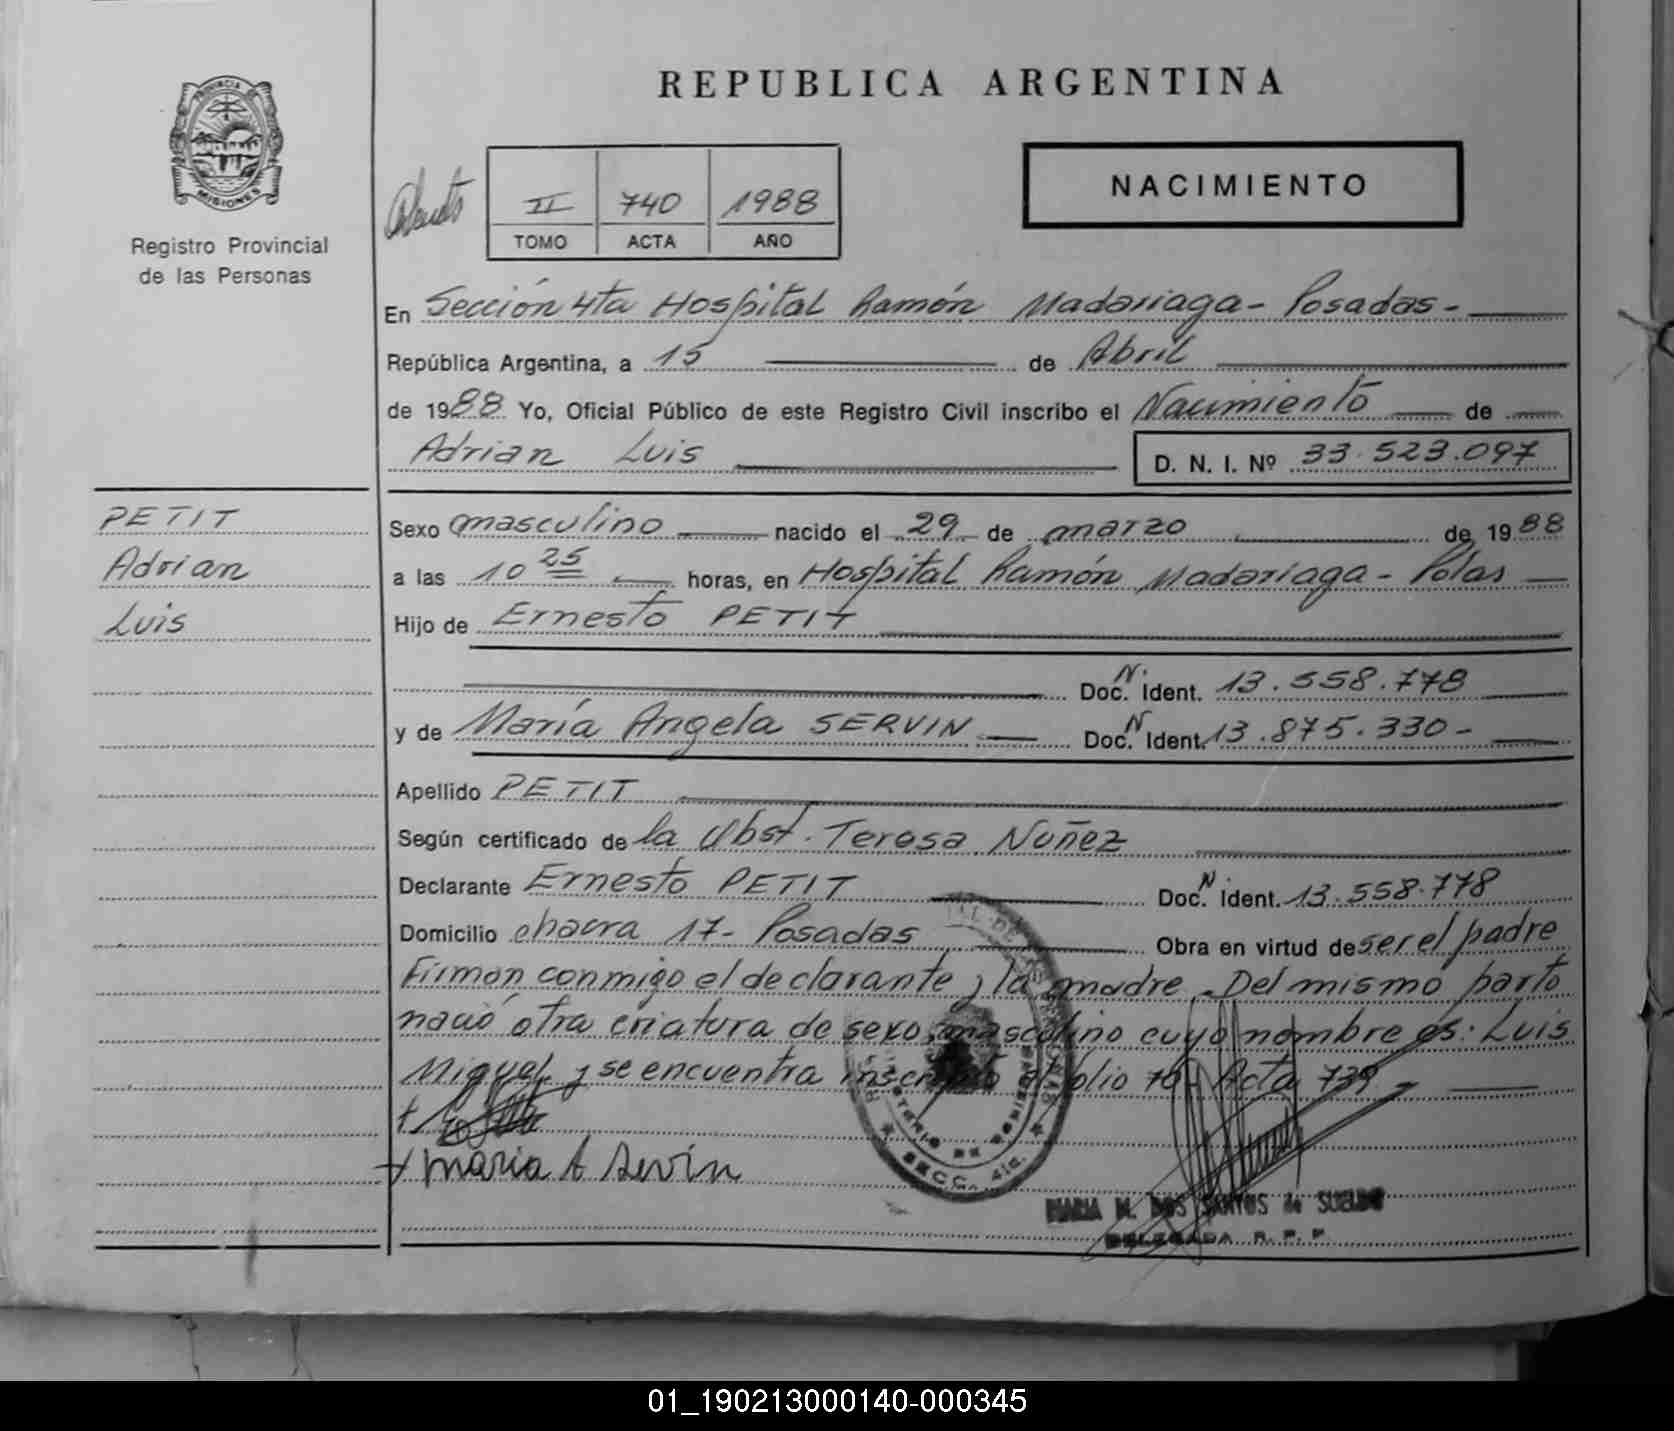 REPUBLICA ARGENTINA
PROVINCIA DE
MISIONES
Registro Provincial
de las Personas
II 740 1988
TOMO ACTA AÑO
NACIMIENTO
En Sección 4ta Hospital Ramón Madariaga - Posadas -
República Argentina, a 15 de Abril
de 1988 Yo, Oficial Público de este Registro Civil inscribo el Nacimiento de
Adrian Luis D. N. I. Nº 33.523.097
PETIT
Adrian
Luis
Sexo masculino nacido el 29 de marzo de 1988
a las 10 25 horas, en Hospital Ramón Madariaga - Pdas
Hijo de Ernesto PETIT
Doc. N. Ident. 13.558.778
y de María Angela SERVIN Doc. N. Ident. 13.875.330 -
Apellido PETIT
Según certificado de la Obst. Teresa Nuñez
Declarante Ernesto PETIT Doc. N. Ident. 13.558.778
Domicilio chacra 17 - Posadas Obra en virtud de ser el padre
Firman conmigo el declarante y la madre. Del mismo parto
nació otra criatura de sexo masculino cuyo nombre es: Luis
Miguel y se encuentra inscripto al folio 70 - Acta 739
maria A Servin
SECC. 4ta.
MARIA M. DOS SANTOS de SUELDO
DELEGADA R. P. P.
01_190213000140-000345